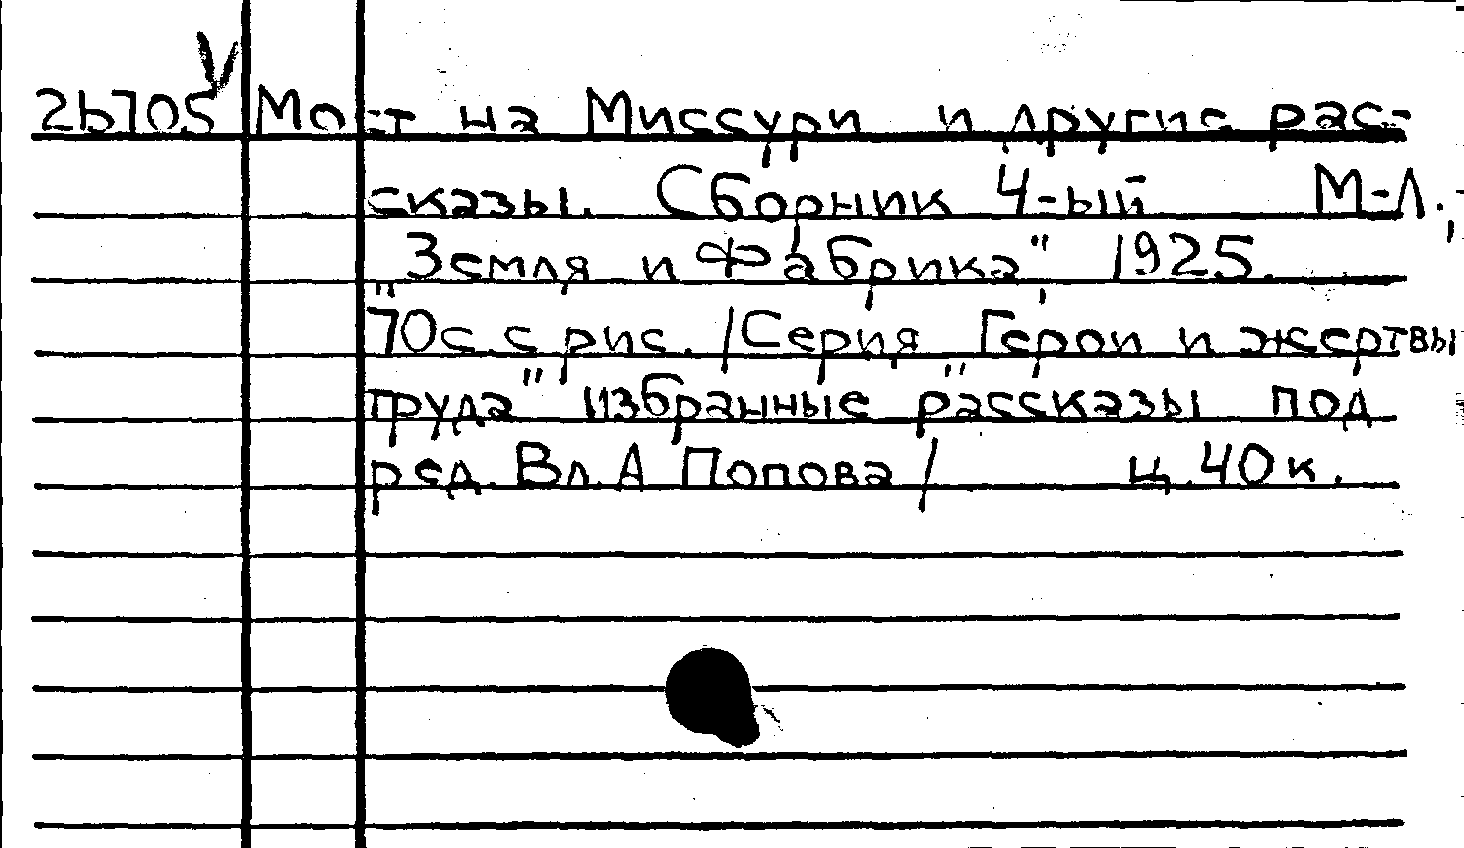 2b705 Мост на Миссури и другие рас-
сказы. Сборник 4-ый М-Л.,
"Земля и Фабрика", 1925.
70с. с рис. /Серия "Герои и жертвы
труда" избранные рассказы под
ред. Вл. А Попова/ ц. 40 к.